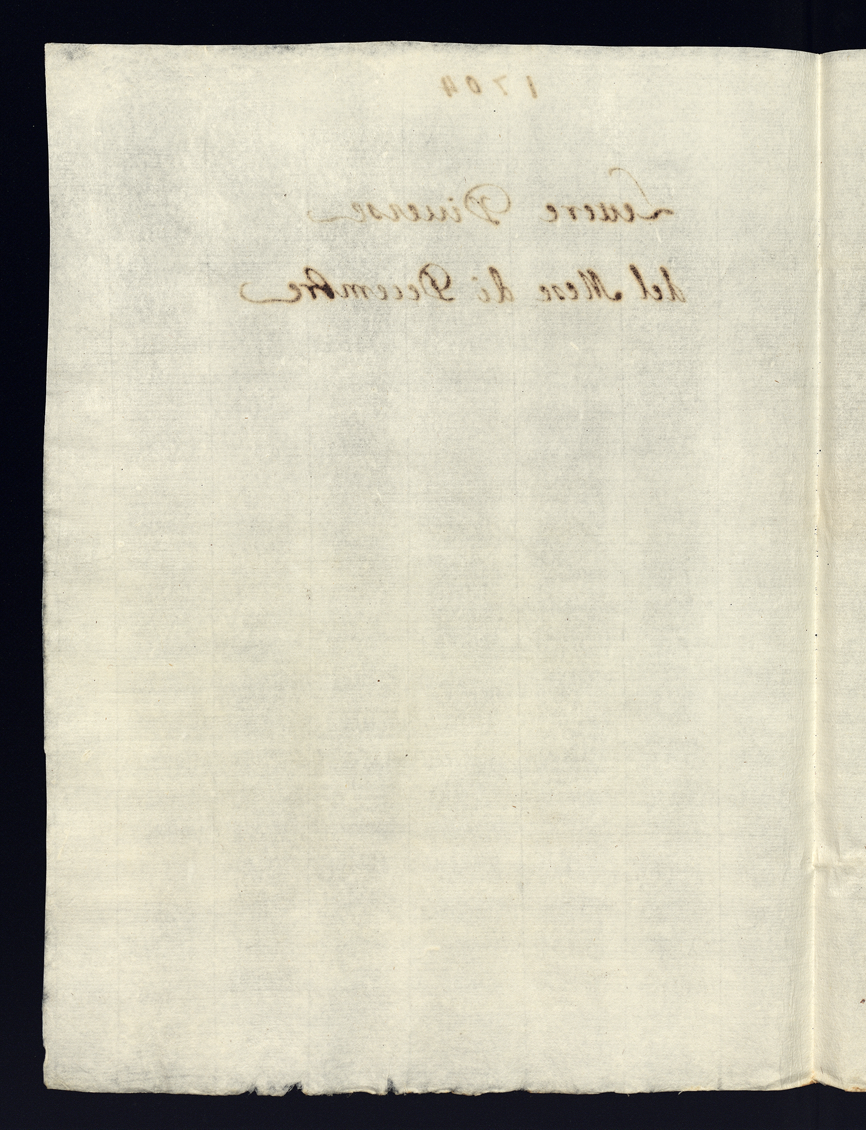 1704
Lettere Diuerse
del Mese di Decembre